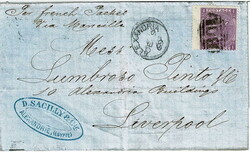 Per french Packet
via Marseille
ALEXANDRIA
Mess
Lumbroso Pinto & Co
10 Alexandra Buildings
Liverpool
B 01
D. SACILLY & CIE
ALEXANDRIE (EGYPTE)